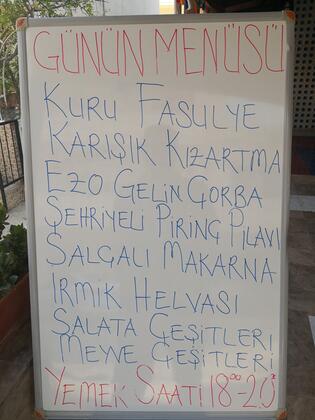 GÜNÜN MENÜSÜ
KURU FASULYE
KARIŞIK KIZARTMA
EZO GELİN ÇORBA
ŞEHRİYELİ PİRİNÇ PİLAVI
SALÇALI MAKARNA
İRMİK HELVASI
SALATA ÇEŞİTLERİ
MEYVE ÇEŞİTLERİ
YEMEK SAATİ 18⁰⁰-20